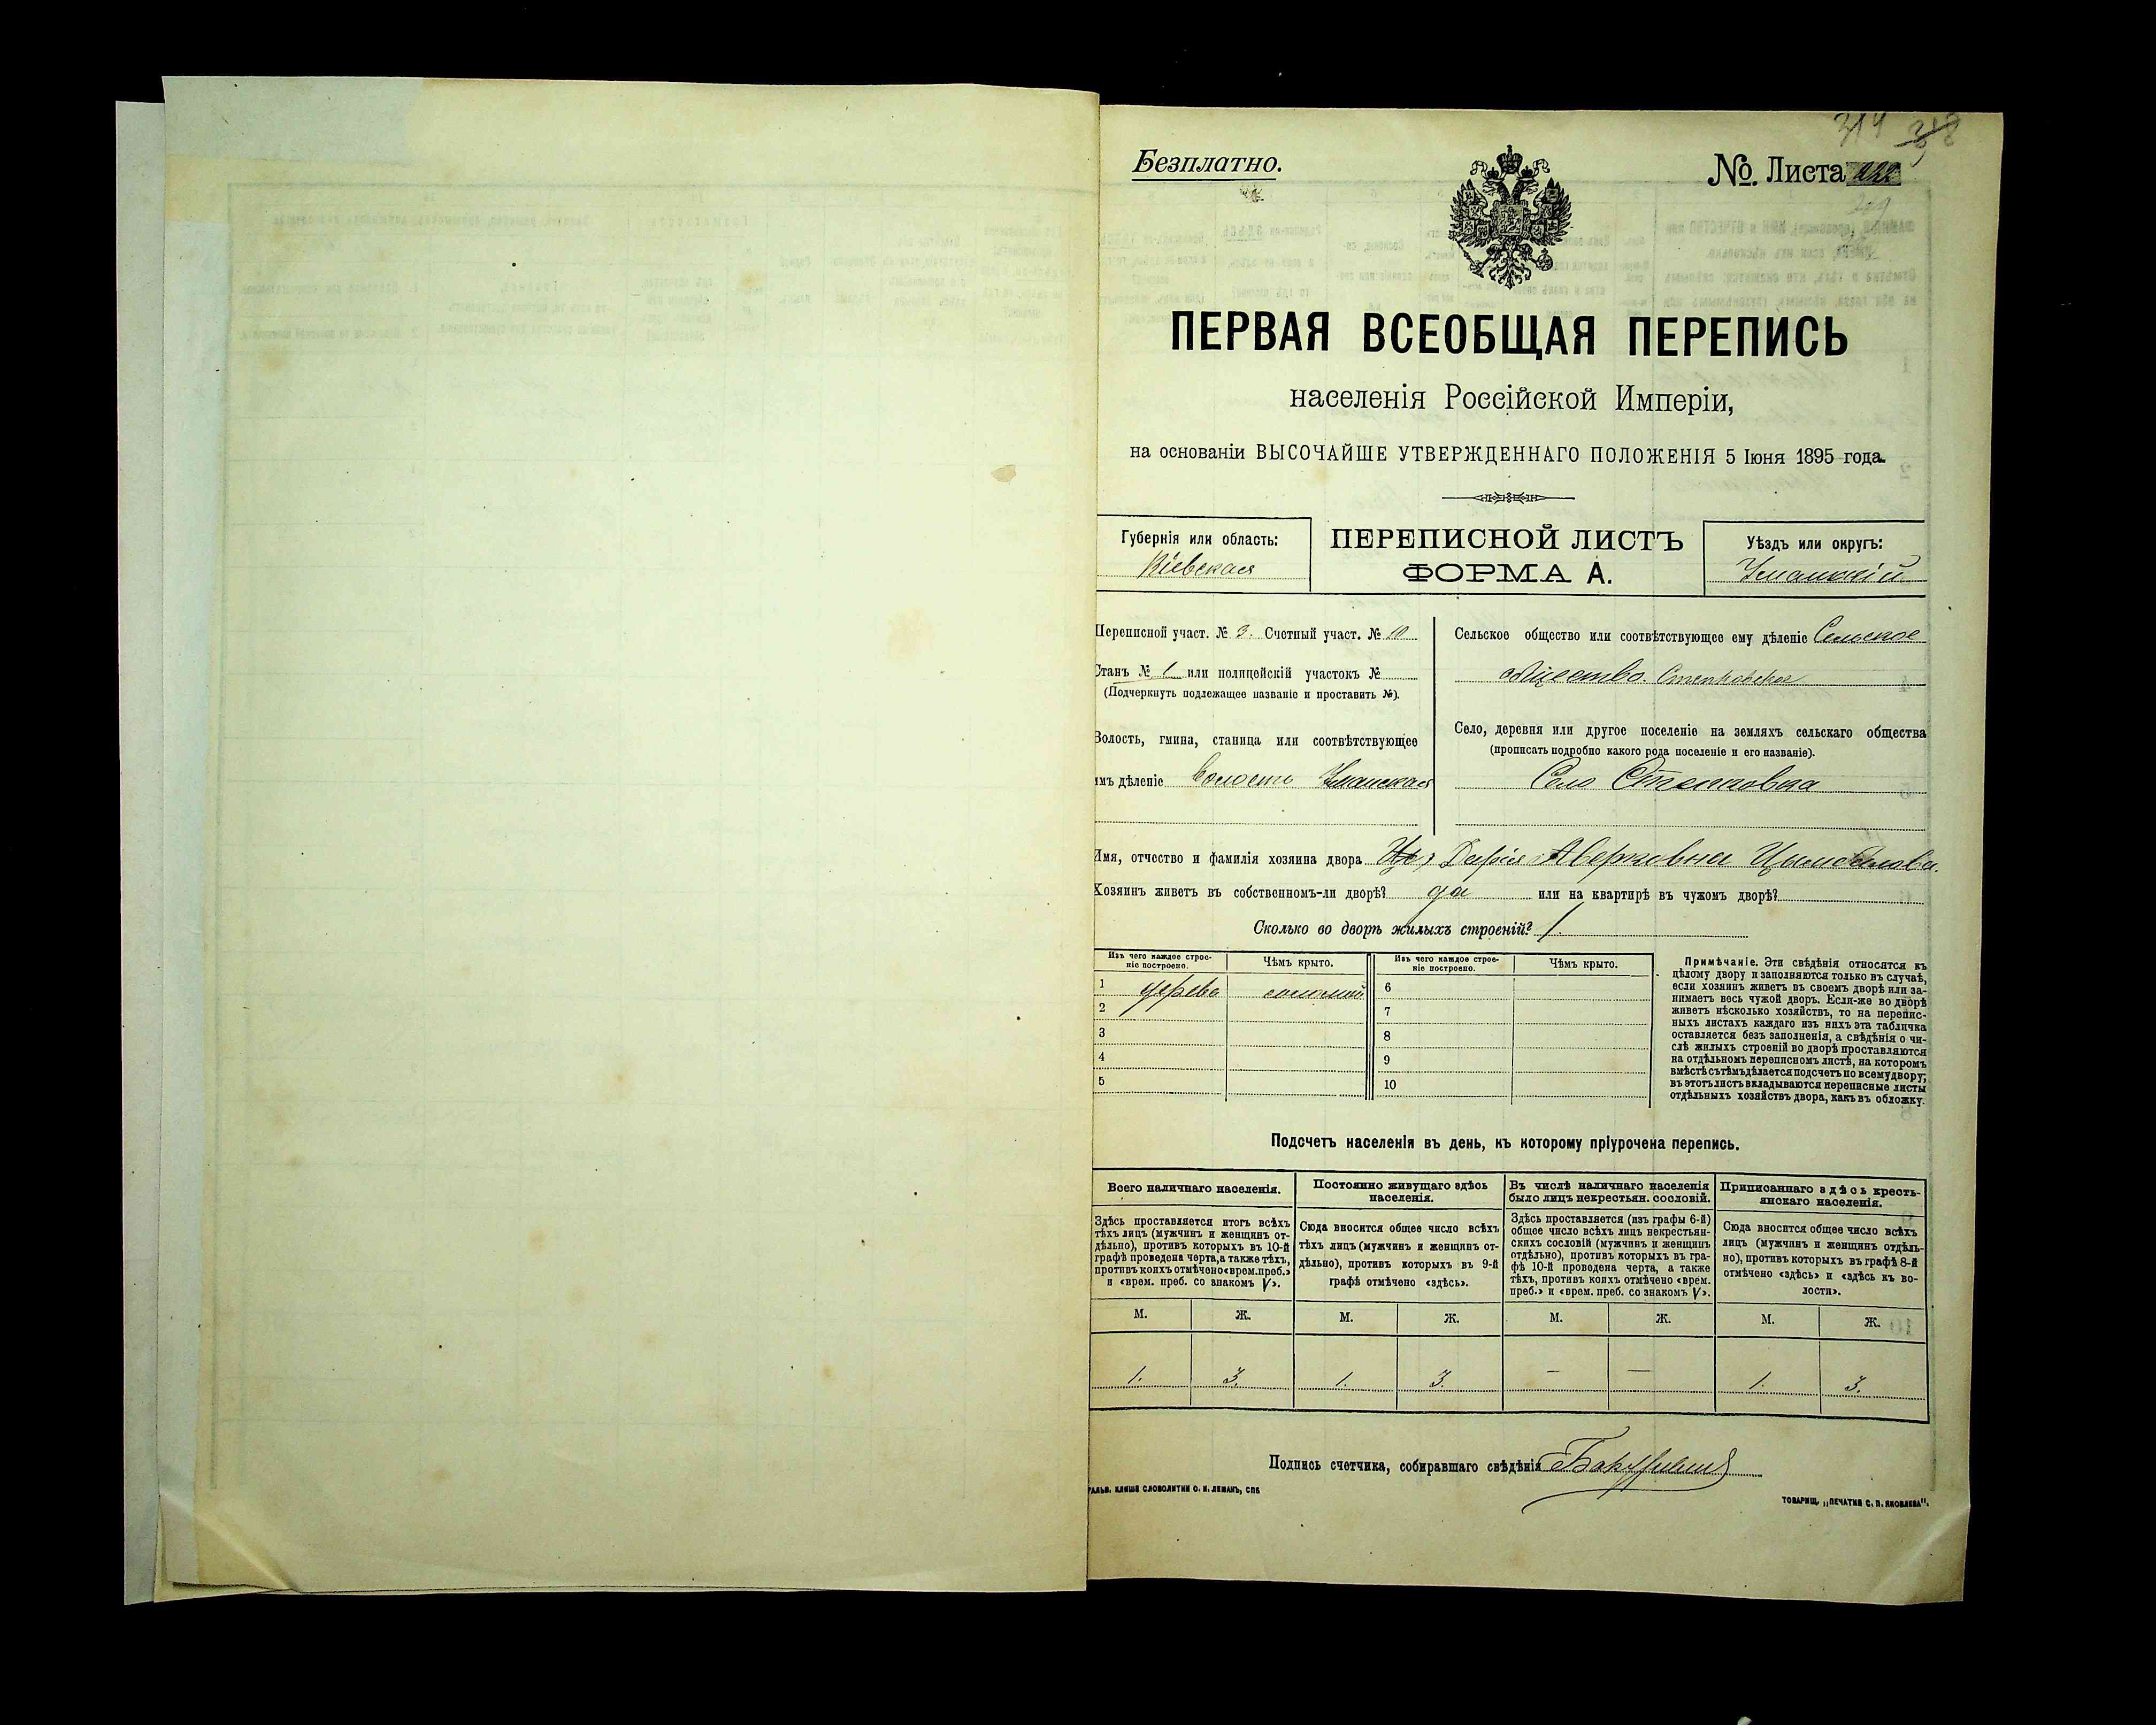 314
Безплатно.
№ Листа
ПЕРВАЯ ВСЕОБЩАЯ ПЕРЕПИСЬ
населенія Россійской Имперіи,
на основаніи ВЫСОЧАЙШЕ УТВЕРЖДЕННАГО ПОЛОЖЕНІЯ 5 Іюня 1895 года.
Губернія или область:
Кіевская
ПЕРЕПИСНОЙ ЛИСТЪ
ФОРМА А.
Уѣздъ или округъ:
Уманскій
Переписной участ. № 3. Счетный участ. № 10
Станъ № 1 или полицейскій участокъ №
(Подчеркнуть подлежащее названіе и проставить №).
Волость, гмина, станица или соотвѣтствующее
имъ дѣленіе Волость Уманская
Сельское общество или соотвѣтствующее ему дѣленіе Сельское
общество. Степковское
Село, деревня или другое поселеніе на земляхъ сельскаго общества
(прописать подробно какого рода поселеніе и его названіе).
Село Степковка
Имя, отчество и фамилія хозяина двора Дарія Аверковна Цымбалова.
Хозяинъ живетъ въ собственномъ-ли дворѣ? да или на квартирѣ въ чужомъ дворѣ?
Сколько во дворѣ жилыхъ строеній? 1.
Изъ чего каждое строе-
ніе построено.
Чѣмъ крыто.
Изъ чего каждое строе-
ніе построено.
Чѣмъ крыто.
1 дерево соломой 6
2 7
3 8
4 9
5 10
Примѣчаніе. Эти свѣдѣнія относятся къ
цѣлому двору и заполняются только въ случаѣ,
если хозяинъ живетъ въ своемъ дворѣ или за-
нимаетъ весь чужой дворъ. Если-же во дворѣ
живетъ нѣсколько хозяйствъ, то на перепис-
ныхъ листахъ каждаго изъ нихъ эта табличка
оставляется безъ заполненія, а свѣдѣнія о чи-
слѣ жилыхъ строеній во дворѣ проставляются
на отдѣльномъ переписномъ листѣ, на которомъ
вмѣстѣ съ тѣмъ дѣлается подсчетъ по всему двору;
въ этотъ листъ вкладываются переписные листы
отдѣльныхъ хозяйствъ двора, какъ въ обложку.
Подсчетъ населенія въ день, къ которому пріурочена перепись.
Всего наличнаго населенія.
Здѣсь проставляется итогъ всѣхъ
тѣхъ лицъ (мужчинъ и женщинъ от-
дѣльно), противъ которыхъ въ 10-й
графѣ проведена черта, а также тѣхъ,
противъ коихъ отмѣчено «врем. преб.»
и «врем. преб. со знакомъ V».
Постоянно живущаго здѣсь
населенія.
Сюда вносится общее число всѣхъ
тѣхъ лицъ (мужчинъ и женщинъ от-
дѣльно), противъ которыхъ въ 9-й
графѣ отмѣчено «здѣсь».
Въ числѣ наличнаго населенія
было лицъ некрестьян. сословій.
Здѣсь проставляется (изъ графы 6-й)
общее число всѣхъ лицъ некрестьян-
скихъ сословій (мужчинъ и женщинъ
отдѣльно), противъ которыхъ въ гра-
фѣ 10-й проведена черта, а также
тѣхъ, противъ коихъ отмѣчено «врем.
преб.» и «врем. преб. со знакомъ V».
Приписаннаго здѣсь кресть-
янскаго населенія.
Сюда вносится общее число всѣхъ
лицъ (мужчинъ и женщинъ отдѣль-
но), противъ которыхъ въ графѣ 8-й
отмѣчено «здѣсь» и «здѣсь къ во-
лости».
М. Ж. М. Ж. М. Ж. М. Ж.
1. 3. 1. 3. — — 1. 3.
Подпись счетчика, собиравшаго свѣдѣнія
ГАЛЬВ. КЛИШЕ СЛОВОЛИТНИ О. И. ЛЕМАНЪ, СПБ
ТОВАРИЩ. „ПЕЧАТНЯ С. П. ЯКОВЛЕВА".